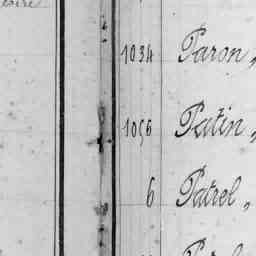 1034 Paron,
1056 Patin,
6 Patrel,